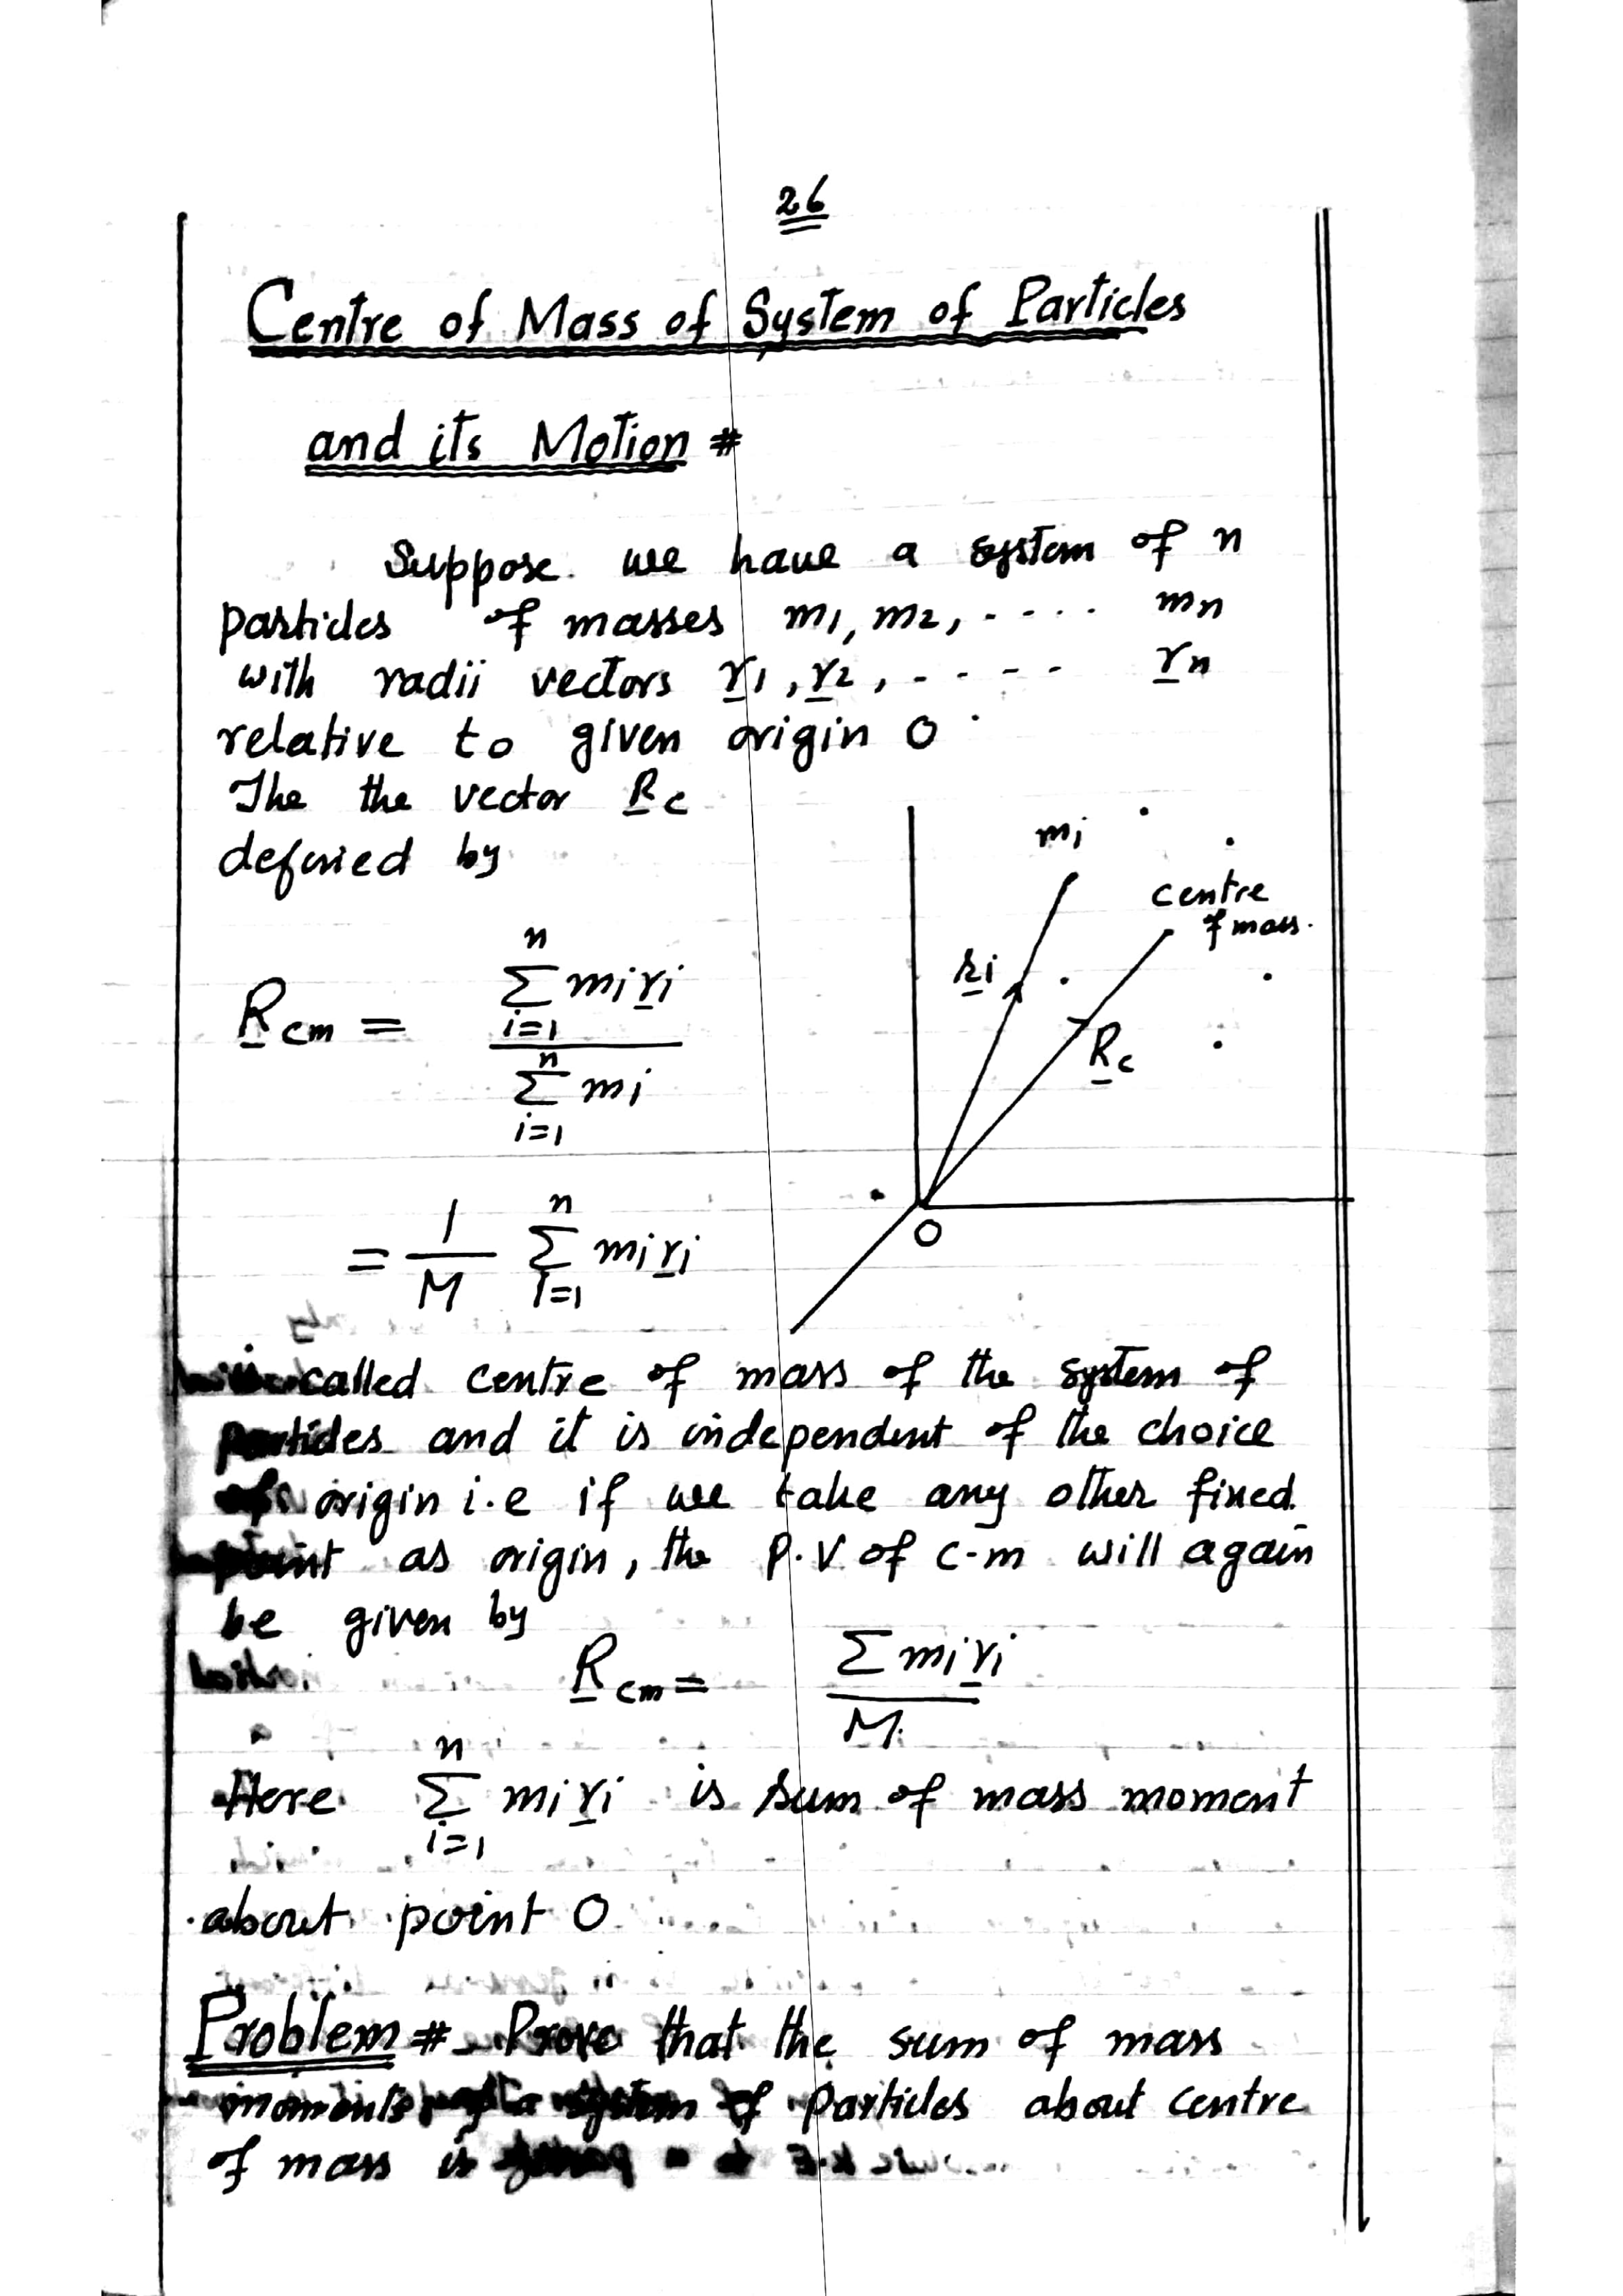 26
Centre of Mass of System of Particles
and its Motion #
Suppose we have a system of n
particles of masses m1, m2, - - - - mn
with radii vectors r1, r2, - - - - rn
relative to given origin O
The the vector Rc
defined by
mi
centre
of mass.
ri
Rc
O
Rcm = \frac{\sum_{i=1}^{n} mi ri}{\sum_{i=1}^{n} mi}
= \frac{1}{M} \sum_{i=1}^{n} mi ri
called centre of mass of the system of
particles and it is independent of the choice
of origin i.e if we take any other fixed
point as origin, the P.V of c-m will again
be given by
Rcm = \frac{\sum mi ri}{M}
Here \sum_{i=1}^{n} mi ri is sum of mass moment
about point O
Problem # Prove that the sum of mass
moments of a system of particles about centre
of mass is